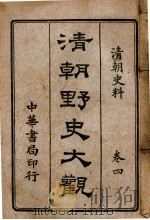 清朝史料
卷四
清朝野史大觀
中華書局印行